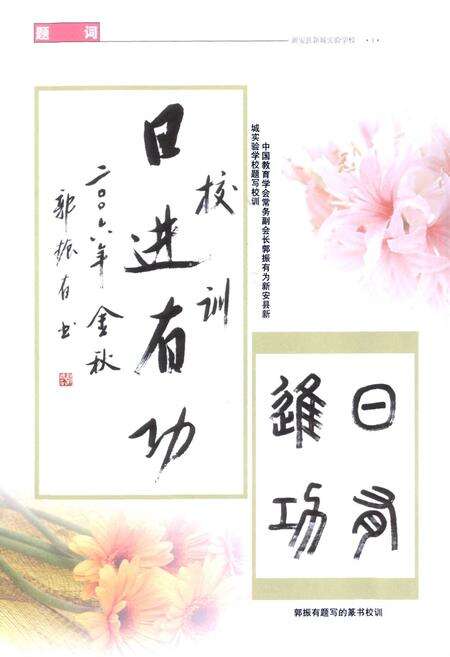 题 词
新安县新城实验学校
校训
日进有功
二〇〇六年金秋
郭振有书
中国教育学会常务副会长郭振有为新安县新
城实验学校题写校训
日有
进功
郭振有题写的篆书校训